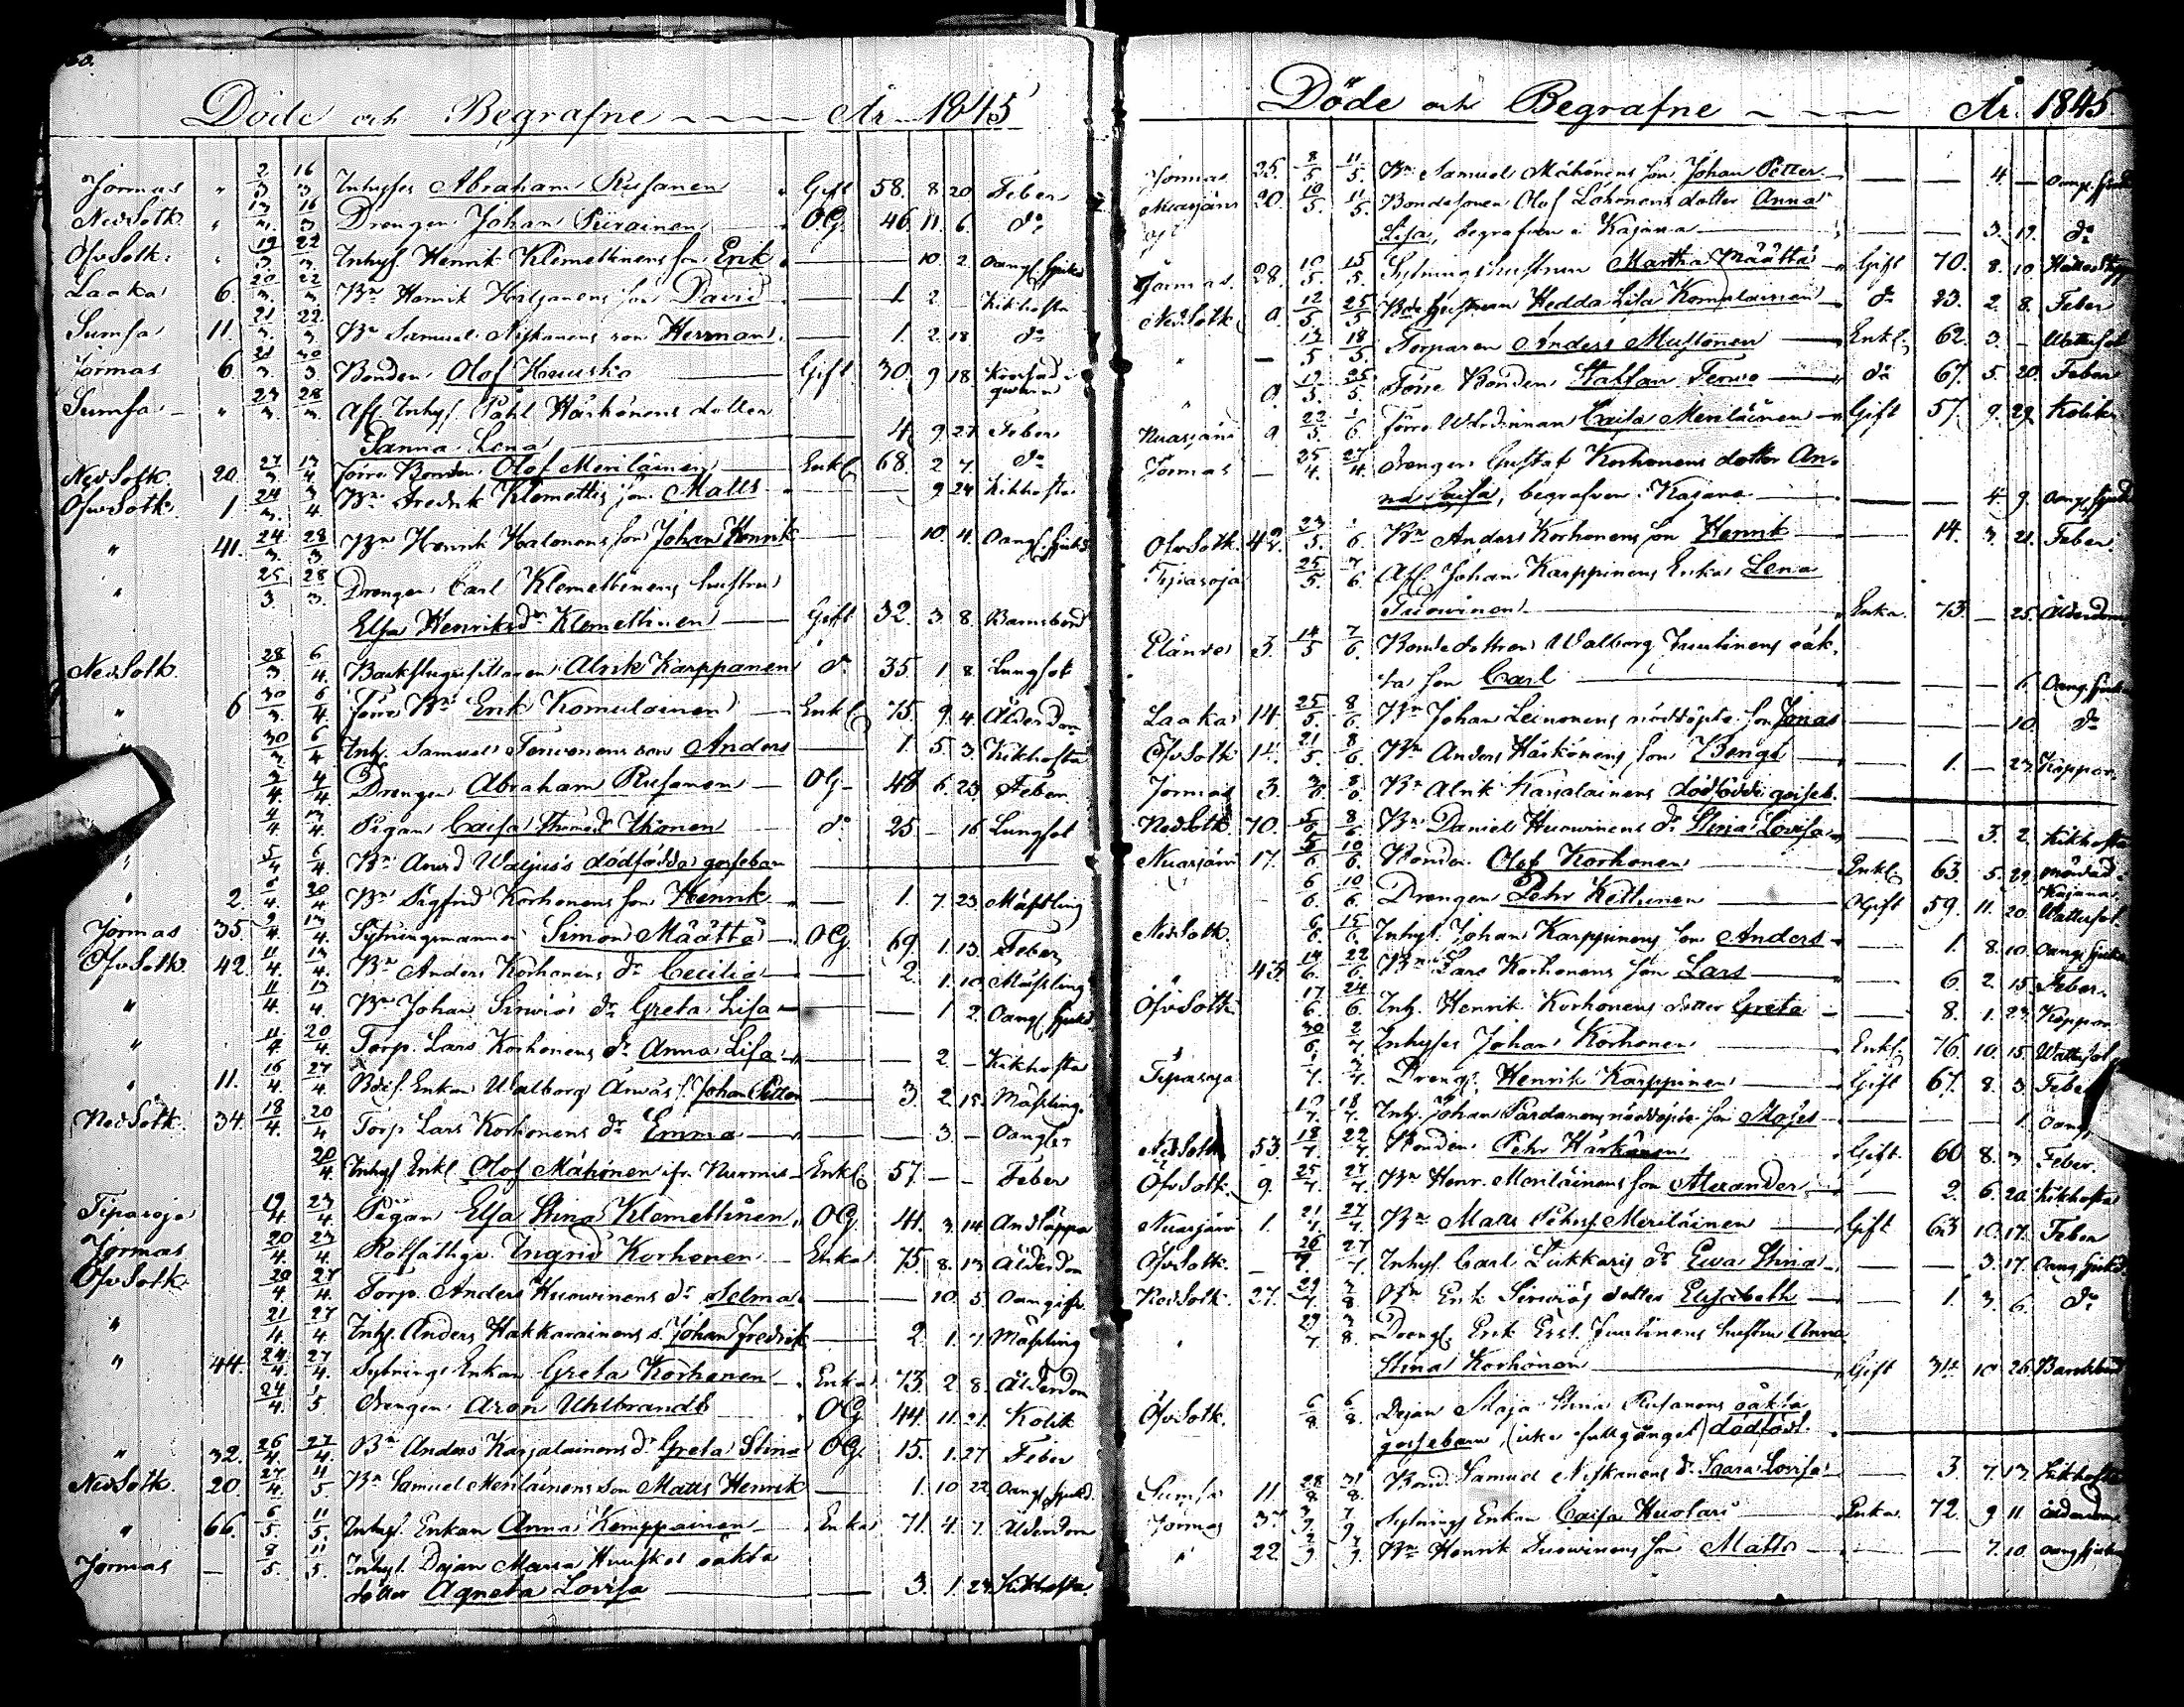 Döde och Begrafne År 1845
Jormas " 2/3 16/3 Inhyses Abraham Rusanen Gift 58. 8 20 Feber
Ned Sotk. " 13/3 16/3 Drengen Johan Piirainen O.G. 46. 11. 6. do
Öfv Sotk. " 19/3 22/3 Inhys. Henrik Klemettinens son Erik — 10. 2. oang. sjukd
Laaka 6. 20/3 22/3 Bn Henrik son David — 1. 2. Kikhosta
Sumsa 11. 21/3 22/3 Bn Samuel Niskanens son Herrman — 1. 2. 18. do
Jormas 6. 21/3 30/3 Bonden Olof Huusko Gift 30. 9 18
Sumsa " 23/3 28/3 Afl. Inhys. Påhl Härkönens dotter
Sanna Lena — 4. 9. 27 Feber
Ned Sotk. 20. 27/3 13/4 förre Bonden Olof Meriläinen Enkl. 68. 2 7. do
Öfv Sotk. 1. 24/3 3/4 Bn Fredrik Klemettis son Matts — 9 24 Kikhosta
" 41. 24/3 28/3 Bn Henrik Halonens son Johan Henrik — 10. 4. Oang. sjukd
" 25/3 28/3 Drengen Carl Klemettinens hustru
Elsa Henriksdr Klemettinen Gift 32. 3 8. Barnsbörd
Ned Sotk. 28/3 6/4 Backstugusittaren Alrik Karppanen do 35. 1 8 Lungsot
" 6 30/3 6/4 förre Bn Erik Komulainen Enkl. 75. 9. 4. Ålderdom
" 30/3 6/4 Inhy. Samuel son Anders — 1. 5 3. Kikhosta
3/4 4/4 Drengen Abraham Rusanen OG 48 6. 23. Feber
4/4 13/4 Pigan Caisa Ihonen do 25 — 16 Lungsot
" 5/4 6/4 Bn Waljus's dödfödda gossebarn
" 2. 5/4 20/4 Bn Sigfrid Korhonens son Henrik — 1. 7. 23. Mässling
Jormas 35. 9/4 13/4 Sytningsmannen Simon Määttä OG. 69. 1. 13. Feber
Öfv Sotk. 42. 11/4 13/4 Bn Anders Korhonens dr Cecilia — 2. 1. 10. Mässling
" 11/4 13/4 Bn Johan Sirviös dr Greta Lisa — 1 2. Oang. sjukd
" 11/4 20/4 Torp. Lars Korhonens dr Anna Lisa — 2. — Kikhosta
" 11. 16/4 27/4 Enkan Walborg s. Johan Petter — 3. 2. 15. Mässling.
Ned Sotk. 34. 18/4 20/4 Torp Lars Korhonens dr Emma — 3. —
20/4 Inhys Enkl. Olof Mähönen ifr. Nurmis Enkl. 57. — — Feber
Tipasoja 19/4 23/4 Pigan Elsa Stina Klemettinen OG. 41. 3. 14. Andtäppa
Jormas 20/4 23/4 Rotfattige Ingrid Korhonen Enka 75. 8. 13 Ålderdom
Öfv Sotk. 20/4 27/4 Torp. Anders Huovinens dr Selma — 10. 5.
" 21/4 27/4 Inhys. Anders Hakkarainens s. Johan Fredrik — 2. 1. 7. Mässling
" 44. 24/4 27/4 Sytnings Enkan Greta Korhonen Enka 73. 2 8. Ålderdom
24/4 1/5 drengen Aron Uhlbrandt OG 44. 11. 21. Kolik
" 32. 26/4 27/4 Bn Anders Karjalainens dr Greta Stina OG. 15. 1. 27 Feber
Ned Sotk. 20. 27/4 4/5 Bn Samuel Meriläinens son Matts Henrik — 1. 10 22. Oang. sjukd.
" 66. 6/5 11/5 Inhys. Enkan Anna Kemppainen Enka 71. 4. 7. Ålderdom
Jormas — 8/5 11/5 Inhys. Dejan Maria Huuskos oäkta
dotter Agneta Lovisa — 3. 1. 24. Kikhosta.
Döde och Begrafne År. 1845
Jormas 25. 8/5 11/5 Bn Samuel Mähönens son Johan Petter — 4. — oang. sjukd
Nuasjärvi 20. 10/5 11/5 Bondesonen Olof Löhönens dotter Anna
Lisa, begrafven i Kajana — 3. 19. do
Jormas. 28. 10/5 15/5 Sytningshustrun Martha Määttä Gift 70. 8. 10
Ned Sotk. 9. 12/5 25/5 Bde hustrun Hedda Lisa Komulainen do 23. 2. 8. Feber
" — 13/5 18/5 Torparen Anders Mustonen Enkl. 62. 3. — Wattusot
" 9. 19/5 25/5 Förre Bonden Staffan Tervo do 67. 5. 20. Feber
Nuasjärvi 9 22/5 1/6 förre Wärdinnan Caisa Meriläinen Gift 57. 9. 29. Kolik
Jormas — 25/4 27/4 drengen Gustaf Korhonens dotter An-
na Caisa, begrafven i Kajana — 4. 9. Oang. sjukd
Öfv Sotk. 42. 23/5 1/6 Bn Anders Korhonens son Henrik — 14. 3. 21. Feber.
Tipasoja 25/5 7/6 Afl. Johan Karppinens Enka Lena
Enka. 73. — 25. Ålderdom
3. 14/5 7/6 Bondedottren Walborg Juntinens oäk-
ta son Carl — 6 Oang. sjukd
Laaka 14. 25/5 8/6 Bn Johan Leinonens nöddöpte son Jonas — 10. do
Öfv Sotk. 14. 21/5 8/6 Bn Anders Härkönens son Bengt — 1. — 23. Koppor.
Jormas 3. 3/6 8/6 Bn Alrik Karjalainens dödfödde gosseb.
Ned Sotk. 70. 5/6 8/6 Bn Daniel Huovinens dr Stina Lovisa — 3. 2. Kikhosta
Nuasjärvi 17. 5/6 10/6 Bonden Olof Korhonen Enkl. 63. 5. 29. mördad i
Kajana.
6/6 10/6 Drengen Pehr Kettunen Gift 59. 11. 20. Wattusot.
Ned Sotk. 6/6 15/6 Inhys. Johan Karppinens son Anders — 1. 8. 10. Oang. sjukd
" 43. 14/6 22/6 Bn Lars Korhonens son Lars — 6. 2. 15. Feber.
Öfv Sotk. 17/6 24/6 Inhy. Henrik Korhonens dotter Greta — 8. 1. 23. Koppor
30/6 2/7 Inhyses Johan Korhonen Enkl. 76. 10. 15. Wattusot
Tipasoja 1/7 3/7 Drengs. Henrik Karppinen Gift 67. 8. 3. Feber
17/7 18/7 Inhy. Johan Pardanens nöddöpte son Moses — 1.
Ned Sotk. 53. 18/7 22/7 Bonden Pehr Härkönen Gift 60 8. 3 Feber.
Öfv Sotk. 9. 25/7 27/7 Bn Henr. Meriläinens son Alexander — 2. 6. 20. Kikhosta
Nuasjärvi 1. 21/7 27/7 Bn Matts Pehrs. Meriläinen Gift 63 10. 17. Feber
Öfv Sotk. — 26/7 27/7 Inhys. Carl Lukkaris dr Ewa Stina — 3. 17. Oang. sjukd
Ned Sotk. 27. 29/7 3/8 Bn Erik Sirviös dotter Elisabeth — 1. 3. 6. do
" 29/7 3/8 Drengs. Erik Ersf. Juntinens hustru Anna
Stina Korhonen Gift 34. 10 26. Barnsbörd
Öfv Sotk. 6/8 6/8 Dejan Maja Stina Rusanens oäkta
gossebarn, (icke fullgånget) dödfödt.
Sumsa 11. 28/8 31/8 Bond. Samuel Niskanens dr Saara Lovisa — 3. 7. 13. Kikhosta
Jormas 37. 3/9 7/9 Sytnings Enkan Caisa Huotari Enka. 72. 9 11 ålderdom
" 22. 3/9 7/9 Bn Henrik Huovinens son Matts — 7. 10. oang. sjukd